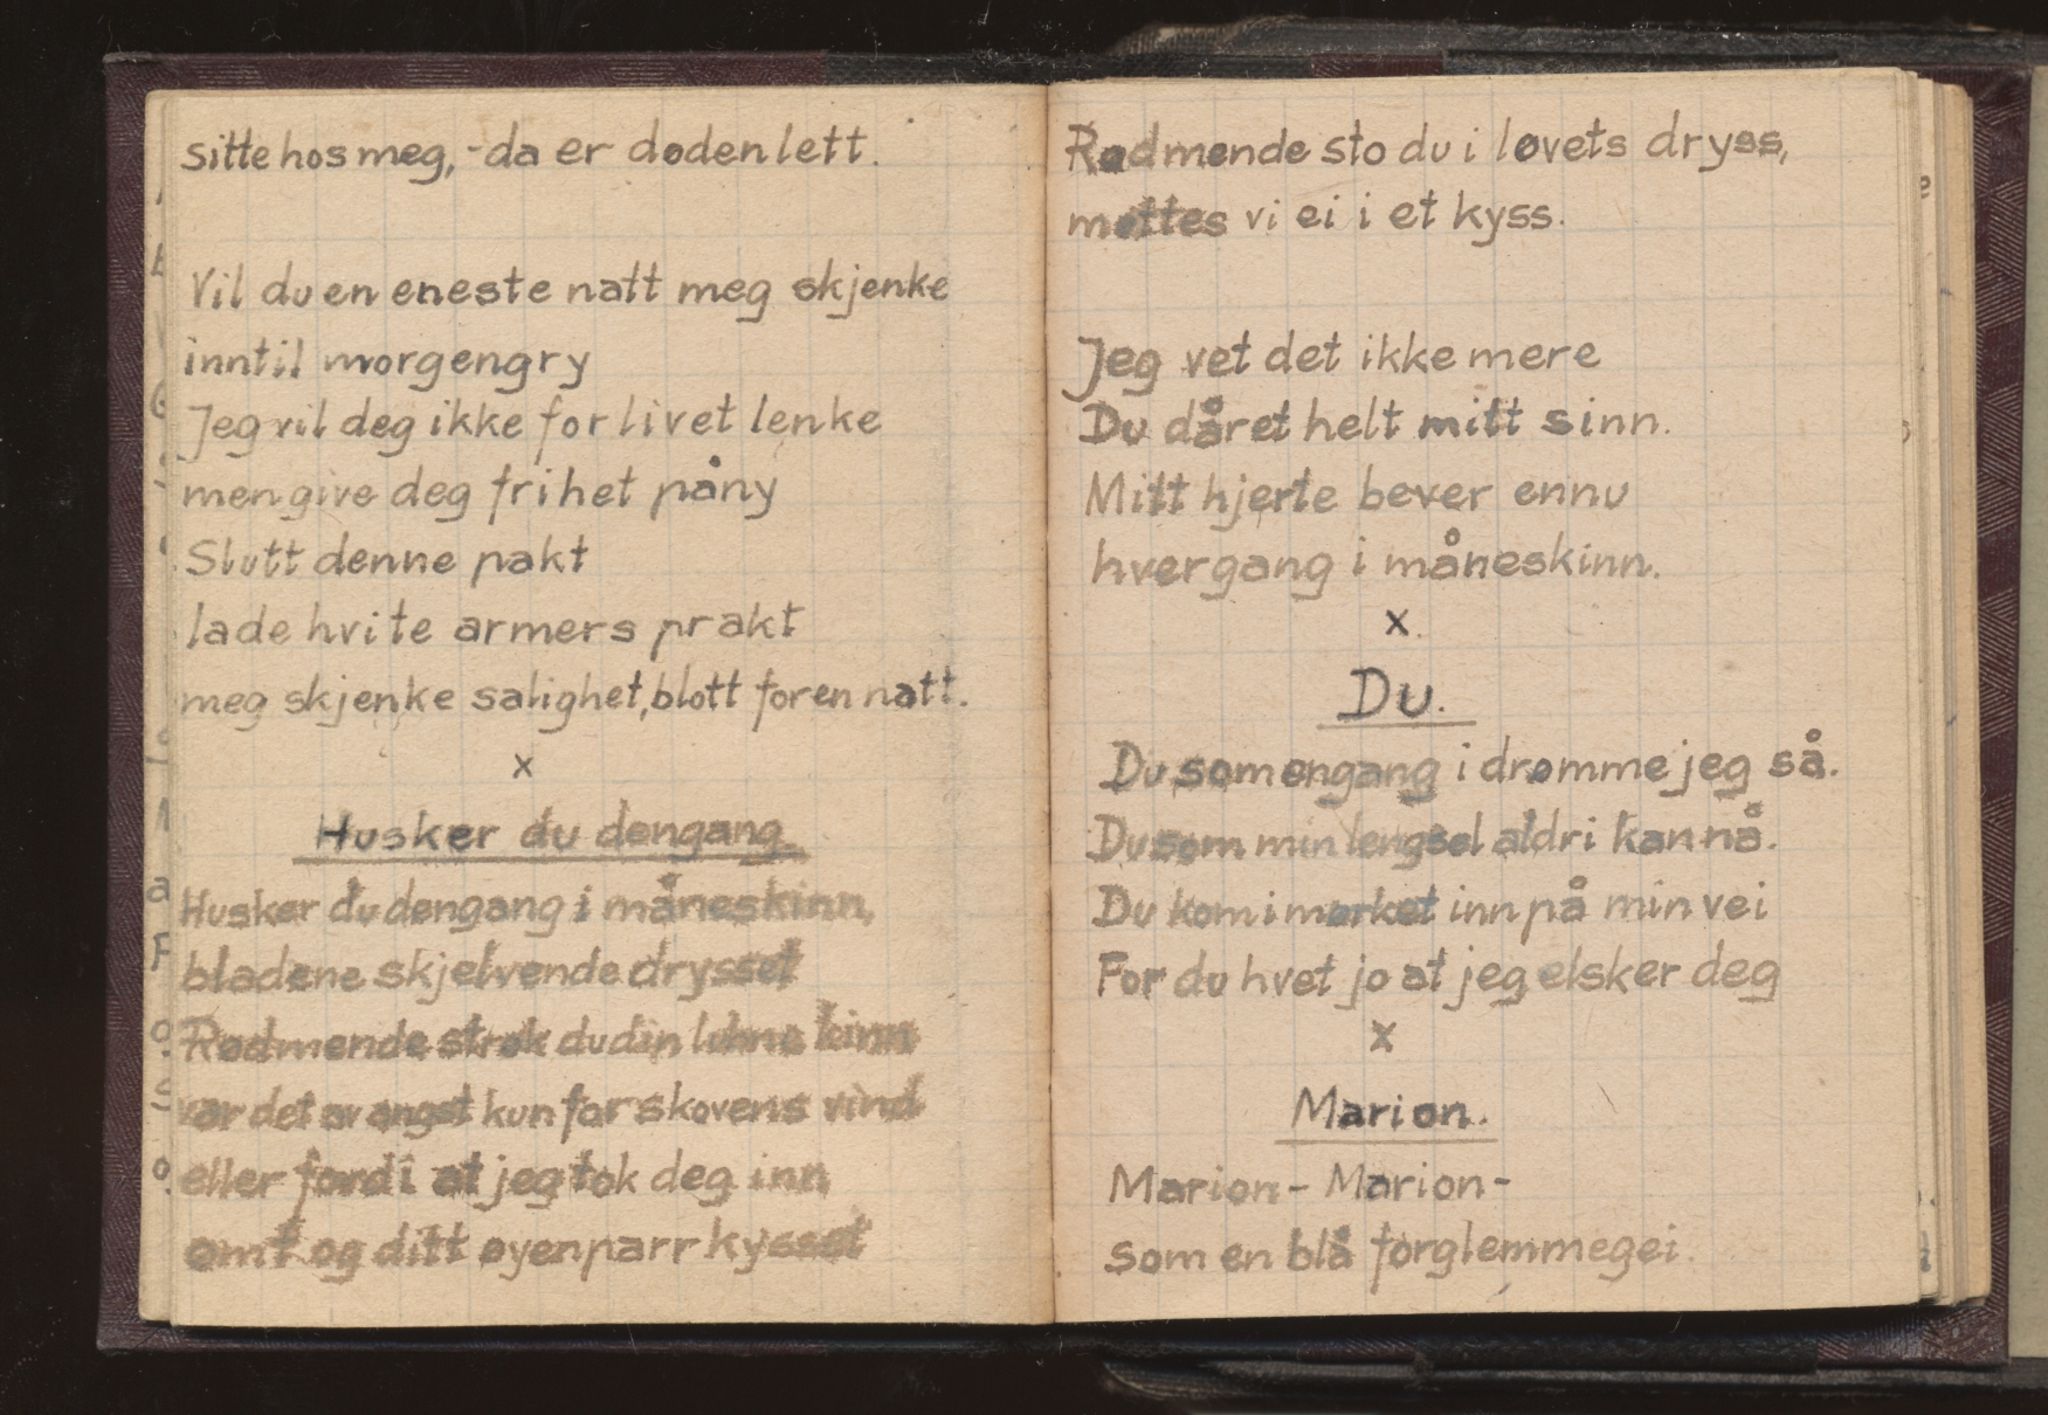 sitte hos meg, - da er doden lett.
Vil du en eneste natt meg skjenke
inntil morgengry
Jeg vil deg ikke for livet lenke
men give deg frihet påny
Slutt denne pakt
lade hvite armers prakt
meg skjenke salighet, blott for en natt.
x
Husker du dengang.
Husker du dengang i måneskinn,
bladene skjelvende drysset
Rødmende strøk du din lunne kinn
var det av angst kun for skovens vind
eller fordi at jeg tok deg inn
omt og ditt øyenparr kysset
Rødmende sto du i løvets dryss,
møttes vi ei i et kyss.
Jeg vet det ikke mere
Du dåret helt mitt sinn.
Mitt hjerte bever ennu
hvergang i måneskinn.
x.
Du.
Du som engang i drømme jeg så.
Du som min lengsel aldri kan nå.
Du kom i mørket inn på min vei
For du hvet jo at jeg elsker deg
x
Marion.
Marion - Marion -
som en blå forglemmegei.